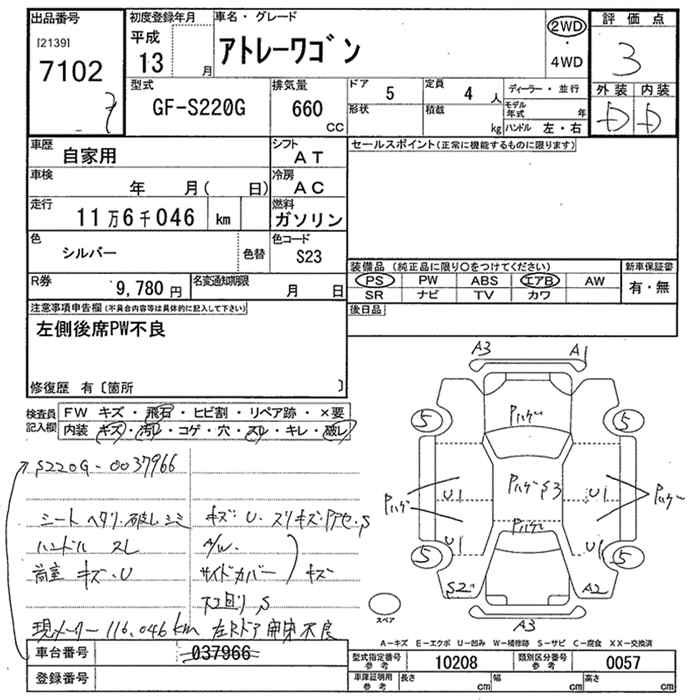 出品番号 初度登録年月 車名・グレード 評価点
[2139] 平成 アトレーワゴン 2WD
7102 13 月 4WD 3
型式 排気量 ドア 5 定員 4 人 ディーラー・並行 外装 内装
GF-S220G 660 CC 形状 積載 kg モデル年式 年 D D
ハンドル 左・右
車歴 自家用 シフト AT セールスポイント(正常に機能するものに限ります)
車検 年 月( 日) 冷房 AC
走行 11万6千046 km 燃料 ガソリン
色 シルバー 色替 色コード S23
R券 9,780円 名変通知期限 月 日
装備品 (純正品に限り○をつけてください) 新車保証書
PS PW ABS エアB AW 有・無
SR ナビ TV カワ
後日品
注意事項申告欄(不具合内容等は具体的に記入して下さい)
左側後席PW不良
修復歴 有〔箇所 〕
検査員記入欄 FW キズ・飛石・ヒビ割・リペア跡・×要
内装 キズ・汚レ・コゲ・穴・スレ・キレ・破レ
S220G-0037966
シート ヘタリ・破レ シミ キズ U・スリキズ・アセ・S
ハンドル スレ A/W.
荷室 キズ・U サイドカバー キズ
下回り S
現メーター 116,046km 左Rドア開閉不良
車台番号 037966
登録番号
A3 A1
5 5
Pハゲ
Pハゲ S3
Pハゲ U1 U1 Pハゲ
Pハゲ
U1 U1
5 5
S2 A2
A3
スペア
A-キズ E-エクボ U-凹み W-補修跡 S-サビ C-腐食 XX-交換済
型式指定番号 参考 10208 類別区分番号 参考 0057
車庫証明用 参考 長さ cm 幅 cm 高さ cm